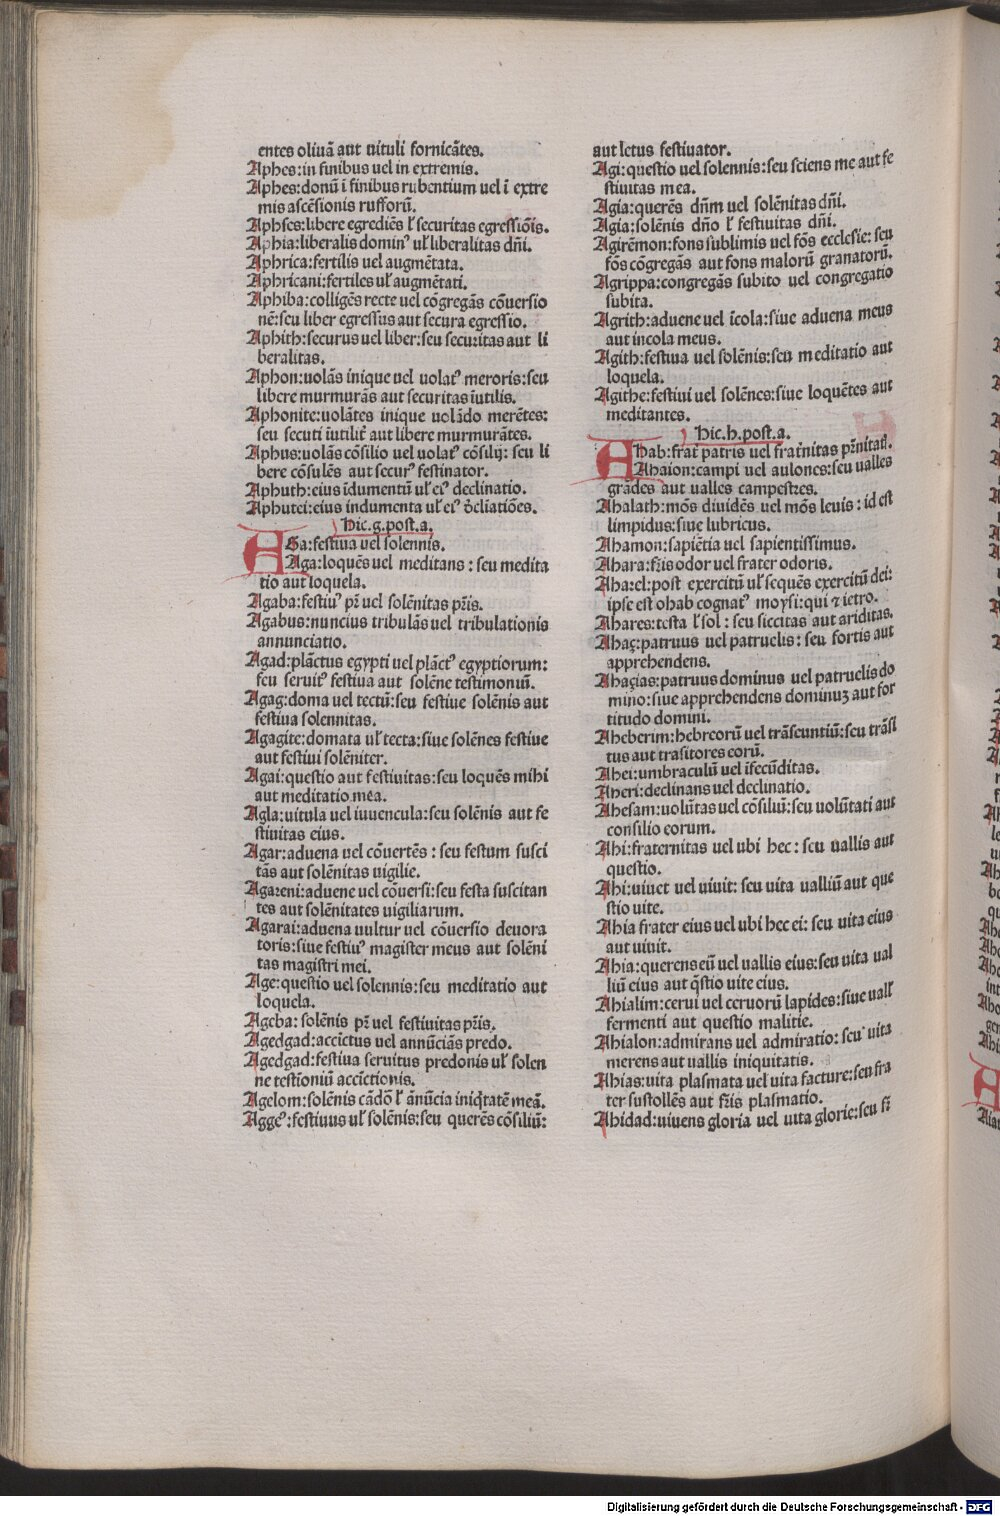 entes oliuā aut uituli fornicātes.
Aphes:in finibus uel in extremis.
Aphes:donū ī finibus rubentium uel ī extre
mis ascēsionis rufforū.
Aphses:libere egrediēs ł securitas egressiōis.
Aphia:liberalis dominꝰ uł liberalitas dñi.
Aphrica:fertilis uel augmētata.
Aphricani:fertiles uł augmētati.
Aphiba:colligēs recte uel cōgregās cōuersio
nē:seu liber egressus aut secura egressio.
Aphith:securus uel liber:seu securitas aut li
beralitas.
Aphon:uolās inique uel uolatꝰ meroris:seu
libere murmurās aut securitas īutilis.
Aphonite:uolātes inique uolādo merētes:
seu secuti īutilit̄ aut libere murmurātes.
Aphus:uolās cōsilio uel uolatꝰ cōsilij: seu li
bere cōsulēs aut securꝰ festinator.
Aphuth:eius īdumentū uł eiꝰ declinatio.
Aphutei:eius indumenta uł eiꝰ d̄cliatiōes.
Hic.g.post.a.
AGa:festiua uel solennis.
Aga:loquēs uel meditans : seu medita
tio aut loquela.
Agaba:festiuꝰ pr̄ uel solēnitas pr̄is.
Agabus:nuncius tribulās uel tribulationis
annunciatio.
Agad:plāctus egypti uel plāctꝰ egyptiorum:
seu seruitꝰ festiua aut solēne testimoniū.
Agag:doma uel tectū:seu festiue solēnis aut
festiua solennitas.
Agagite:domata uł tecta:siue solēnes festiue
aut festiui solēniter.
Agai:questio aut festiuitas:seu loquēs mihi
aut meditatio mea.
Agla:uitula uel iuuencula:seu solēnis aut fe
stiuitas eius.
Agar:aduena uel cōuertēs : seu festum susci
tās aut solēnitas uigilie.
Agareni:aduene uel cōuersi:seu festa suscitan
tes aut solēnitates uigiliarum.
Agarai:aduena uultur uel cōuersio deuora
toris:siue festiuꝰ magister meus aut solēni
tas magistri mei.
Age:questio uel solennis:seu meditatio aut
loquela.
Ageba: solēnis pr̄ uel festiuitas pr̄is.
Agedgad:accictus uel annūciās predo.
Agedgad:festiua seruitus predonis uł solen
ne testīoniū accictionis.
Agelom:solēnis cādō ł ānūcia iniq̄tatē meā.
Aggeꝰ:festiuus uł solēnis:seu querēs cōsiliū:
aut letus festiuator.
Agi:questio uel solennis:seu sciens me aut fe
stiuitas mea.
Agia:querēs dñm uel solēnitas dñi.
Agia:solēnis dño ł festiuitas dñi.
Agirēmon:fons sublimis uel fōs ecclesie: seu
fōs cōgregās aut fons malorū granatorū.
Agrippa:congregās subito uel congregatio
subita.
Agrith:aduene uel īcola:siue aduena meus
aut incola meus.
Agith:festiua uel solēnis:seu meditatio aut
loquela.
Agithe:festiui uel solēnes:siue loquētes aut
meditantes.
Hic.h.post.a.
AHab:frat̄ patris uel frat̄nitas pr̄nitatꝭ.
Ahaion:campi uel aulones:seu ualles
grādes aut ualles campestres.
Ahalath:mōs diuidēs uel mōs leuis : id est
limpidus:siue lubricus.
Ahamon:sapiētia uel sapientissimus.
Ahara:fr̄is odor uel frater odoris.
Aharel:post exercitū uł sequēs exercitū dei:
ipse est ohab cognatꝰ moysi:qui ⁊ ietro.
Ahares:testa ł sol : seu siccitas aut ariditas.
Ahaç:patruus uel patruelis: seu fortis aut
apprehendens.
Ahaçias:patruus dominus uel patruelis do
mino:siue apprehendens dominuꝫ aut for
titudo domini.
Aheberim:hebreorū uel trāseuntiū:seu trāsi
tus aut trāsitores eorū.
Ahei:umbraculū uel īfecūditas.
Aheri:declinans uel declinatio.
Ahesam:uolūtas uel cōsiliū:seu uolūtati aut
consilio eorum.
Ahi:fraternitas uel ubi hec: seu uallis aut
questio.
Ahi:uiuet uel uiuit: seu uita ualliū aut que
stio uite.
Ahia frater eius uel ubi hec ei: seu uita eius
aut uiuit.
Ahia:querens eū uel uallis eius:seu uita ual
liū eius aut q̄stio uite eius.
Ahialim:cerui uel ceruorū lapides:siue uall̄
fermenti aut questio malitie.
Ahialon:admirans uel admiratio: seu uita
merens aut uallis iniquitatis.
Ahias:uita plasmata uel uita facture:seu fra
ter sustollēs aut fr̄is plasmatio.
Ahidad:uiuens gloria uel uita glorie:seu fr̄
Digitalisierung gefördert durch die Deutsche Forschungsgemeinschaft - DFG